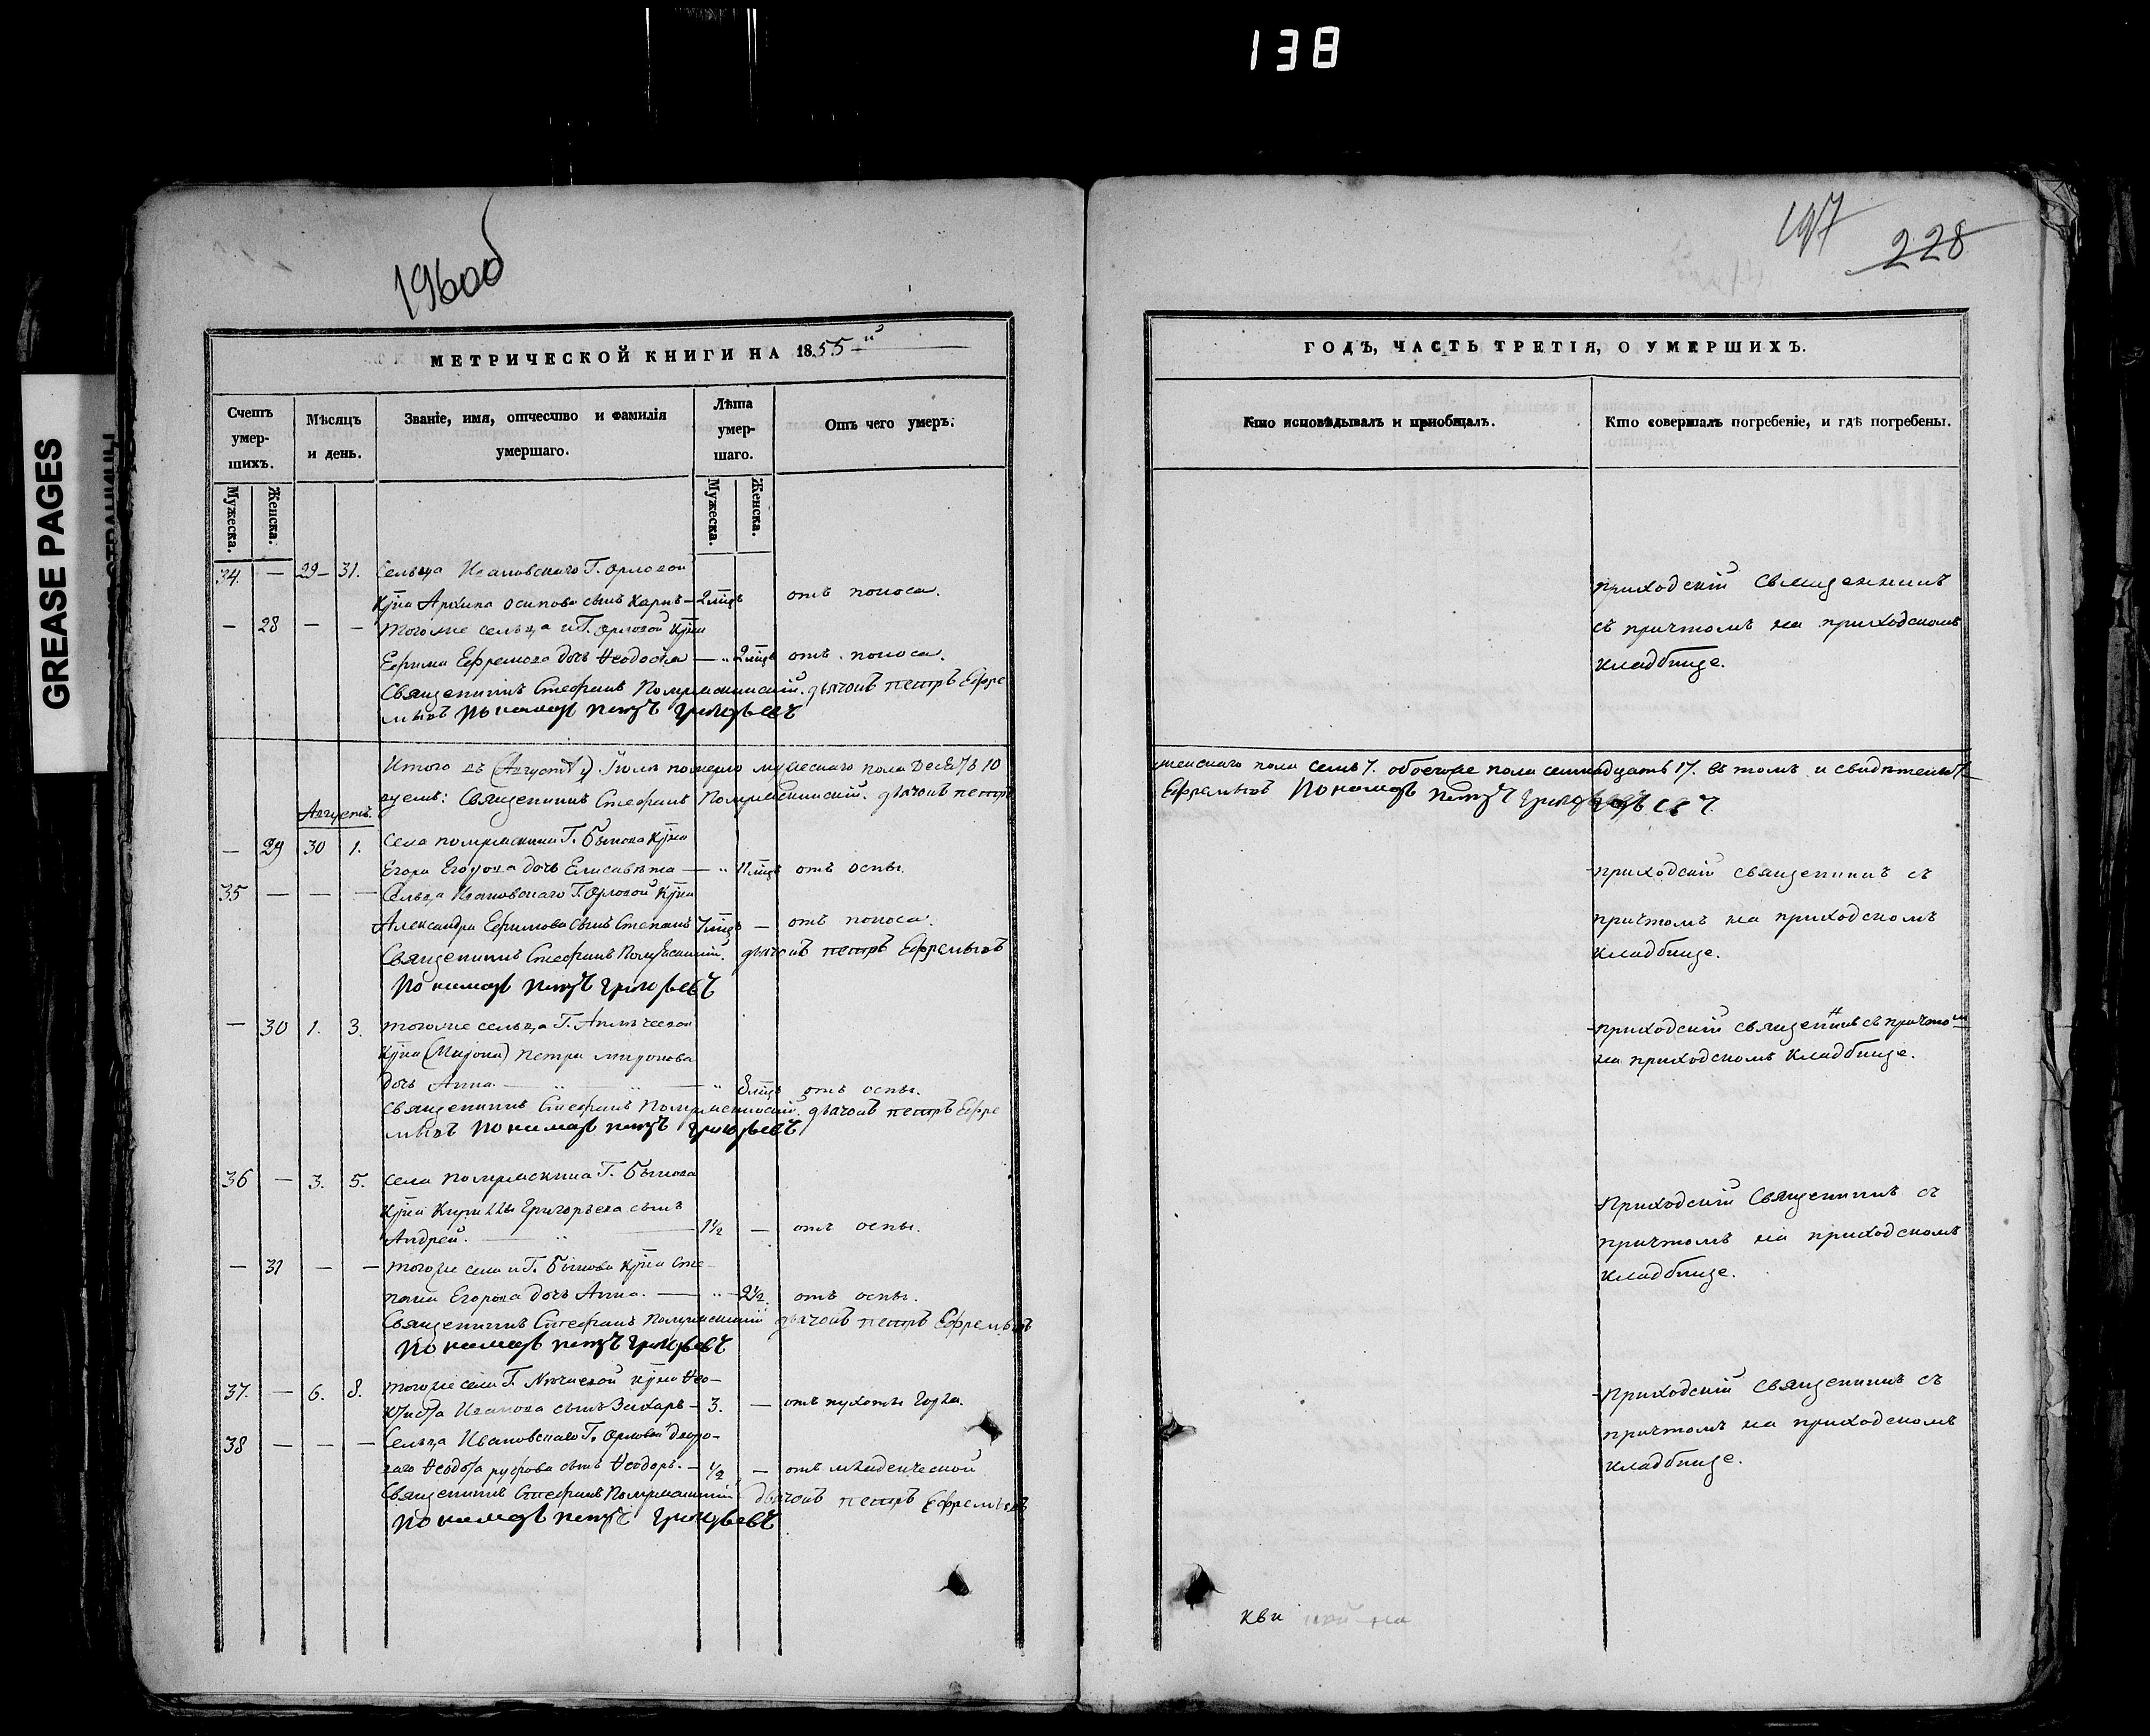 138
GREASE PAGES
196 об
197
228
МЕТРИЧЕСКОЙ КНИГИ НА 1855 й
Счетъ умер- шихъ.
Мѣсяцъ и день.
Званіе, имя, отчество и фамилія умершаго.
Лѣта умер- шаго.
Отъ чего умеръ.
Мужеска.
Женска.
Мужеска.
Женска.
34. — 29 — 31. Сельца Ивановскаго Г. Орловой
Архипа Осипова сынъ Карпъ — 2 отъ поноса.
— 28 — — тогоже сельца и Г. Орловой
Ефима Ефремова дочь Ѳеодосья — " 2 отъ поноса.
Священникъ Стефанъ дьячокъ петръ Ефре
мовъ Пономарь петръ григорьевъ
Итого въ (Августѣ) Іюлѣ померло мужескаго пола Десять 10
Священникъ Стефанъ дьячокъ петръ
Августъ.
— 29 30 1. Села Г. Быкова
Егора Егорова дочь Елисавета — " 11 отъ оспы.
35 — — — Сельца Ивановскаго Г. Орловой
Александра Ефимова сынъ Степанъ 7 — отъ поноса.
Священникъ Стефанъ дьячокъ петръ Ефремовъ
Пономарь петръ григорьевъ
— 30 1. 3. тогоже сельца Г.
(Мирона) Петра миронова
дочь Анна. — " 8 отъ оспы.
священникъ Стефанъ дьячокъ петръ Ефре
мовъ Пономарь петръ григорьевъ
36 — 3. 5. села Г. Быкова
Кириллы Григорьева сынъ
Андрей. — 1½ — отъ оспы.
— 31 — — тогоже села и Г. Быкова Сте-
пана Егорова дочь Анна. — " 2½. отъ оспы.
Священникъ Стефанъ дьячокъ петръ Ефремовъ
Пономарь петръ григорьевъ
37. — 6. 8. тогоже села Г. Ѳео-
Иванова сынъ Захаръ — 3. — отъ горла.
38 — — — Сельца Ивановскаго Г. Орловой дворо-
ваго сынъ Ѳеодоръ. — ½ — отъ младенческой
Священникъ Стефанъ дьячокъ петръ Ефремовъ
Пономарь петръ григорьевъ
ГОДЪ, ЧАСТЬ ТРЕТІЯ, О УМЕРШИХЪ.
Кто исповѣдывалъ и пріобщалъ.
Кто совершалъ погребеніе, и гдѣ погребены.
приходскій священникъ
съ причтомъ на приходскомъ
кладбище.
женскаго пола семь 7. обоегоже пола семнадцать 17. въ томъ и свидѣтель
Ефремовъ Пономарь петръ
приходскій священникъ съ
причтомъ на приходскомъ
кладбище.
приходскій священникъ съ причтомъ
на приходскомъ кладбище.
Приходскій Священникъ съ
причтомъ на приходскомъ
кладбище.
Приходскій Священникъ съ
причтомъ на приходскомъ
кладбище.